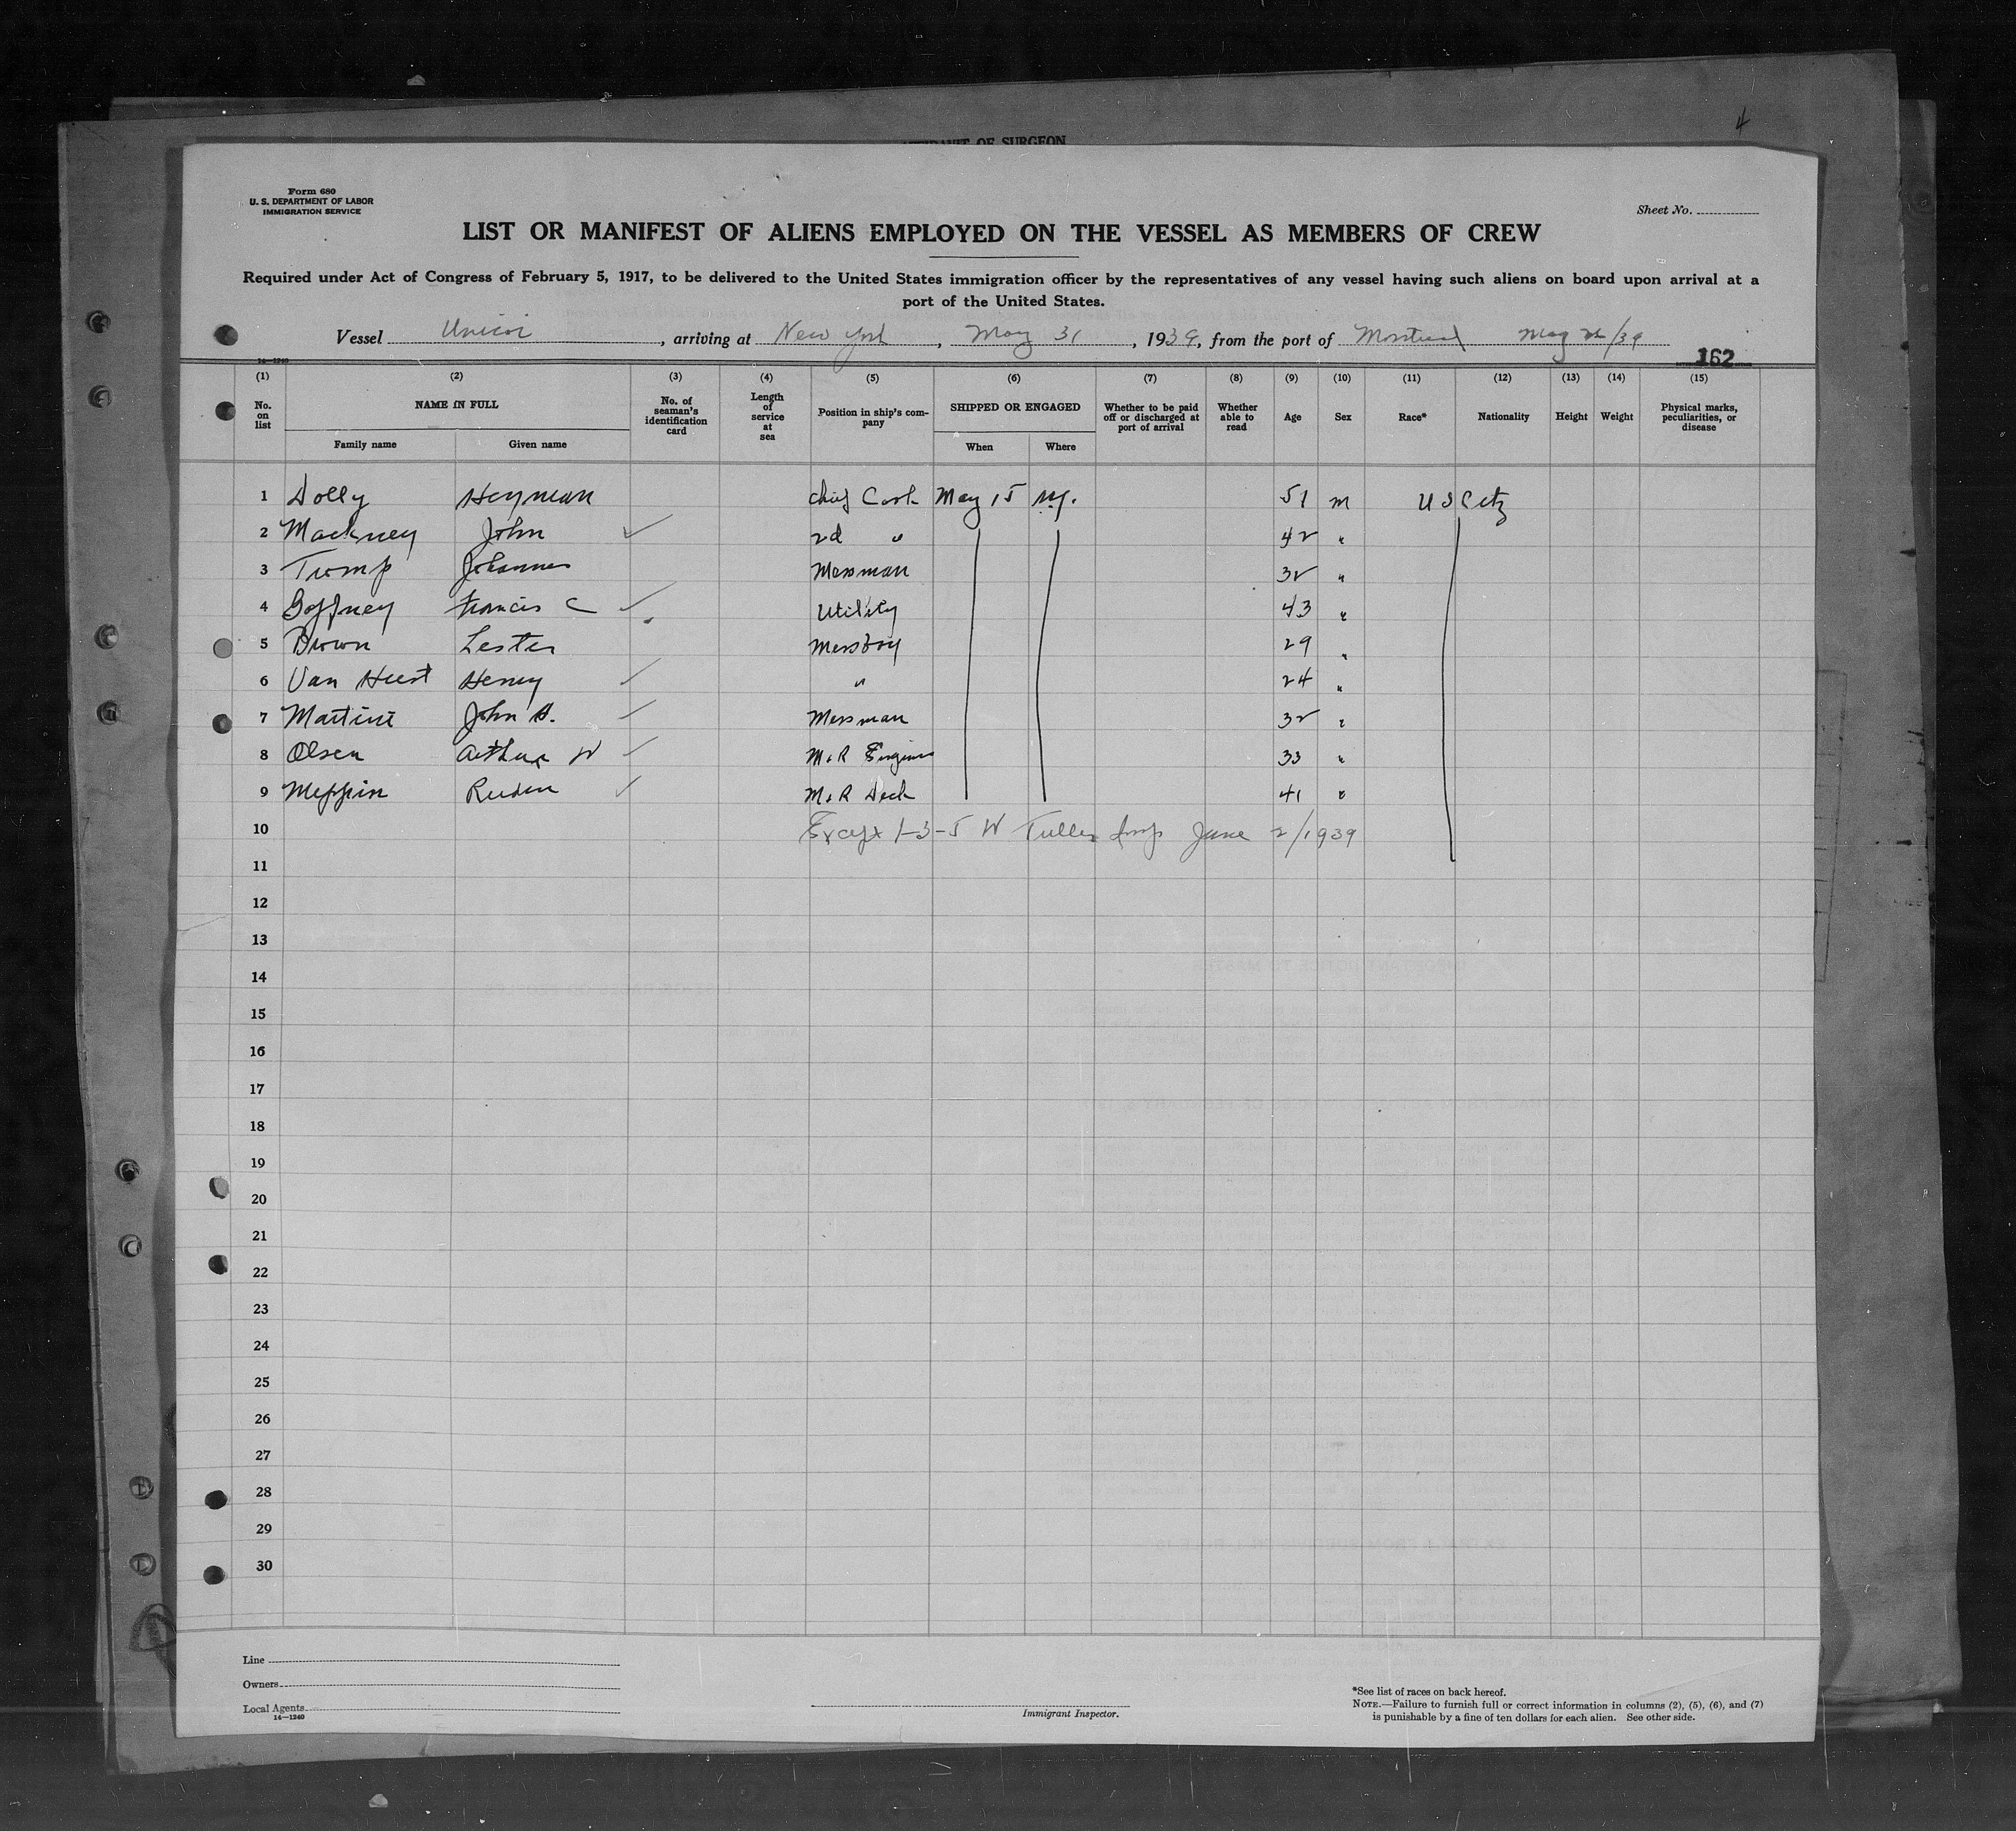 4
AFFIDAVIT OF SURGEON
Form 680
U. S. DEPARTMENT OF LABOR
IMMIGRATION SERVICE
Sheet No.
LIST OR MANIFEST OF ALIENS EMPLOYED ON THE VESSEL AS MEMBERS OF CREW
Required under Act of Congress of February 5, 1917, to be delivered to the United States immigration officer by the representatives of any vessel having such aliens on board upon arrival at a
port of the United States.
Vessel Unicoi, arriving at New York, May 31, 1939, from the port of Montreal May /39
14—1240
162
(1) (2) (3) (4) (5) (6) (7) (8) (9) (10) (11) (12) (13) (14) (15)
No. on list NAME IN FULL Family name Given name No. of seaman's identification card Length of service at sea Position in ship's company SHIPPED OR ENGAGED When Where Whether to be paid off or discharged at port of arrival Whether able to read Age Sex Race* Nationality Height Weight Physical marks, peculiarities, or disease
1 Dolly Heyman Chief Cook May 15 N.Y. 51 m U S Citz
2 Mackney John 2d " 42 "
3 Tromp Johannes Messman 32 "
4 Goffney Francis C Utility 43 "
5 Brown Lester Messboy 29 "
6 Van Hest Henry " 24 "
7 Martini John A. Messman 32 "
8 Olsen Arthur W M & R Engine 33 "
9 M & R Deck 41 "
10 Except 1-3-5 W Tuller Insp June 2/1939
11
12
13
14
15
16
17
18
19
20
21
22
23
24
25
26
27
28
29
30
Line
Owners
Local Agents
14—1240
Immigrant Inspector.
*See list of races on back hereof.
NOTE.—Failure to furnish full or correct information in columns (2), (5), (6), and (7)
is punishable by a fine of ten dollars for each alien. See other side.